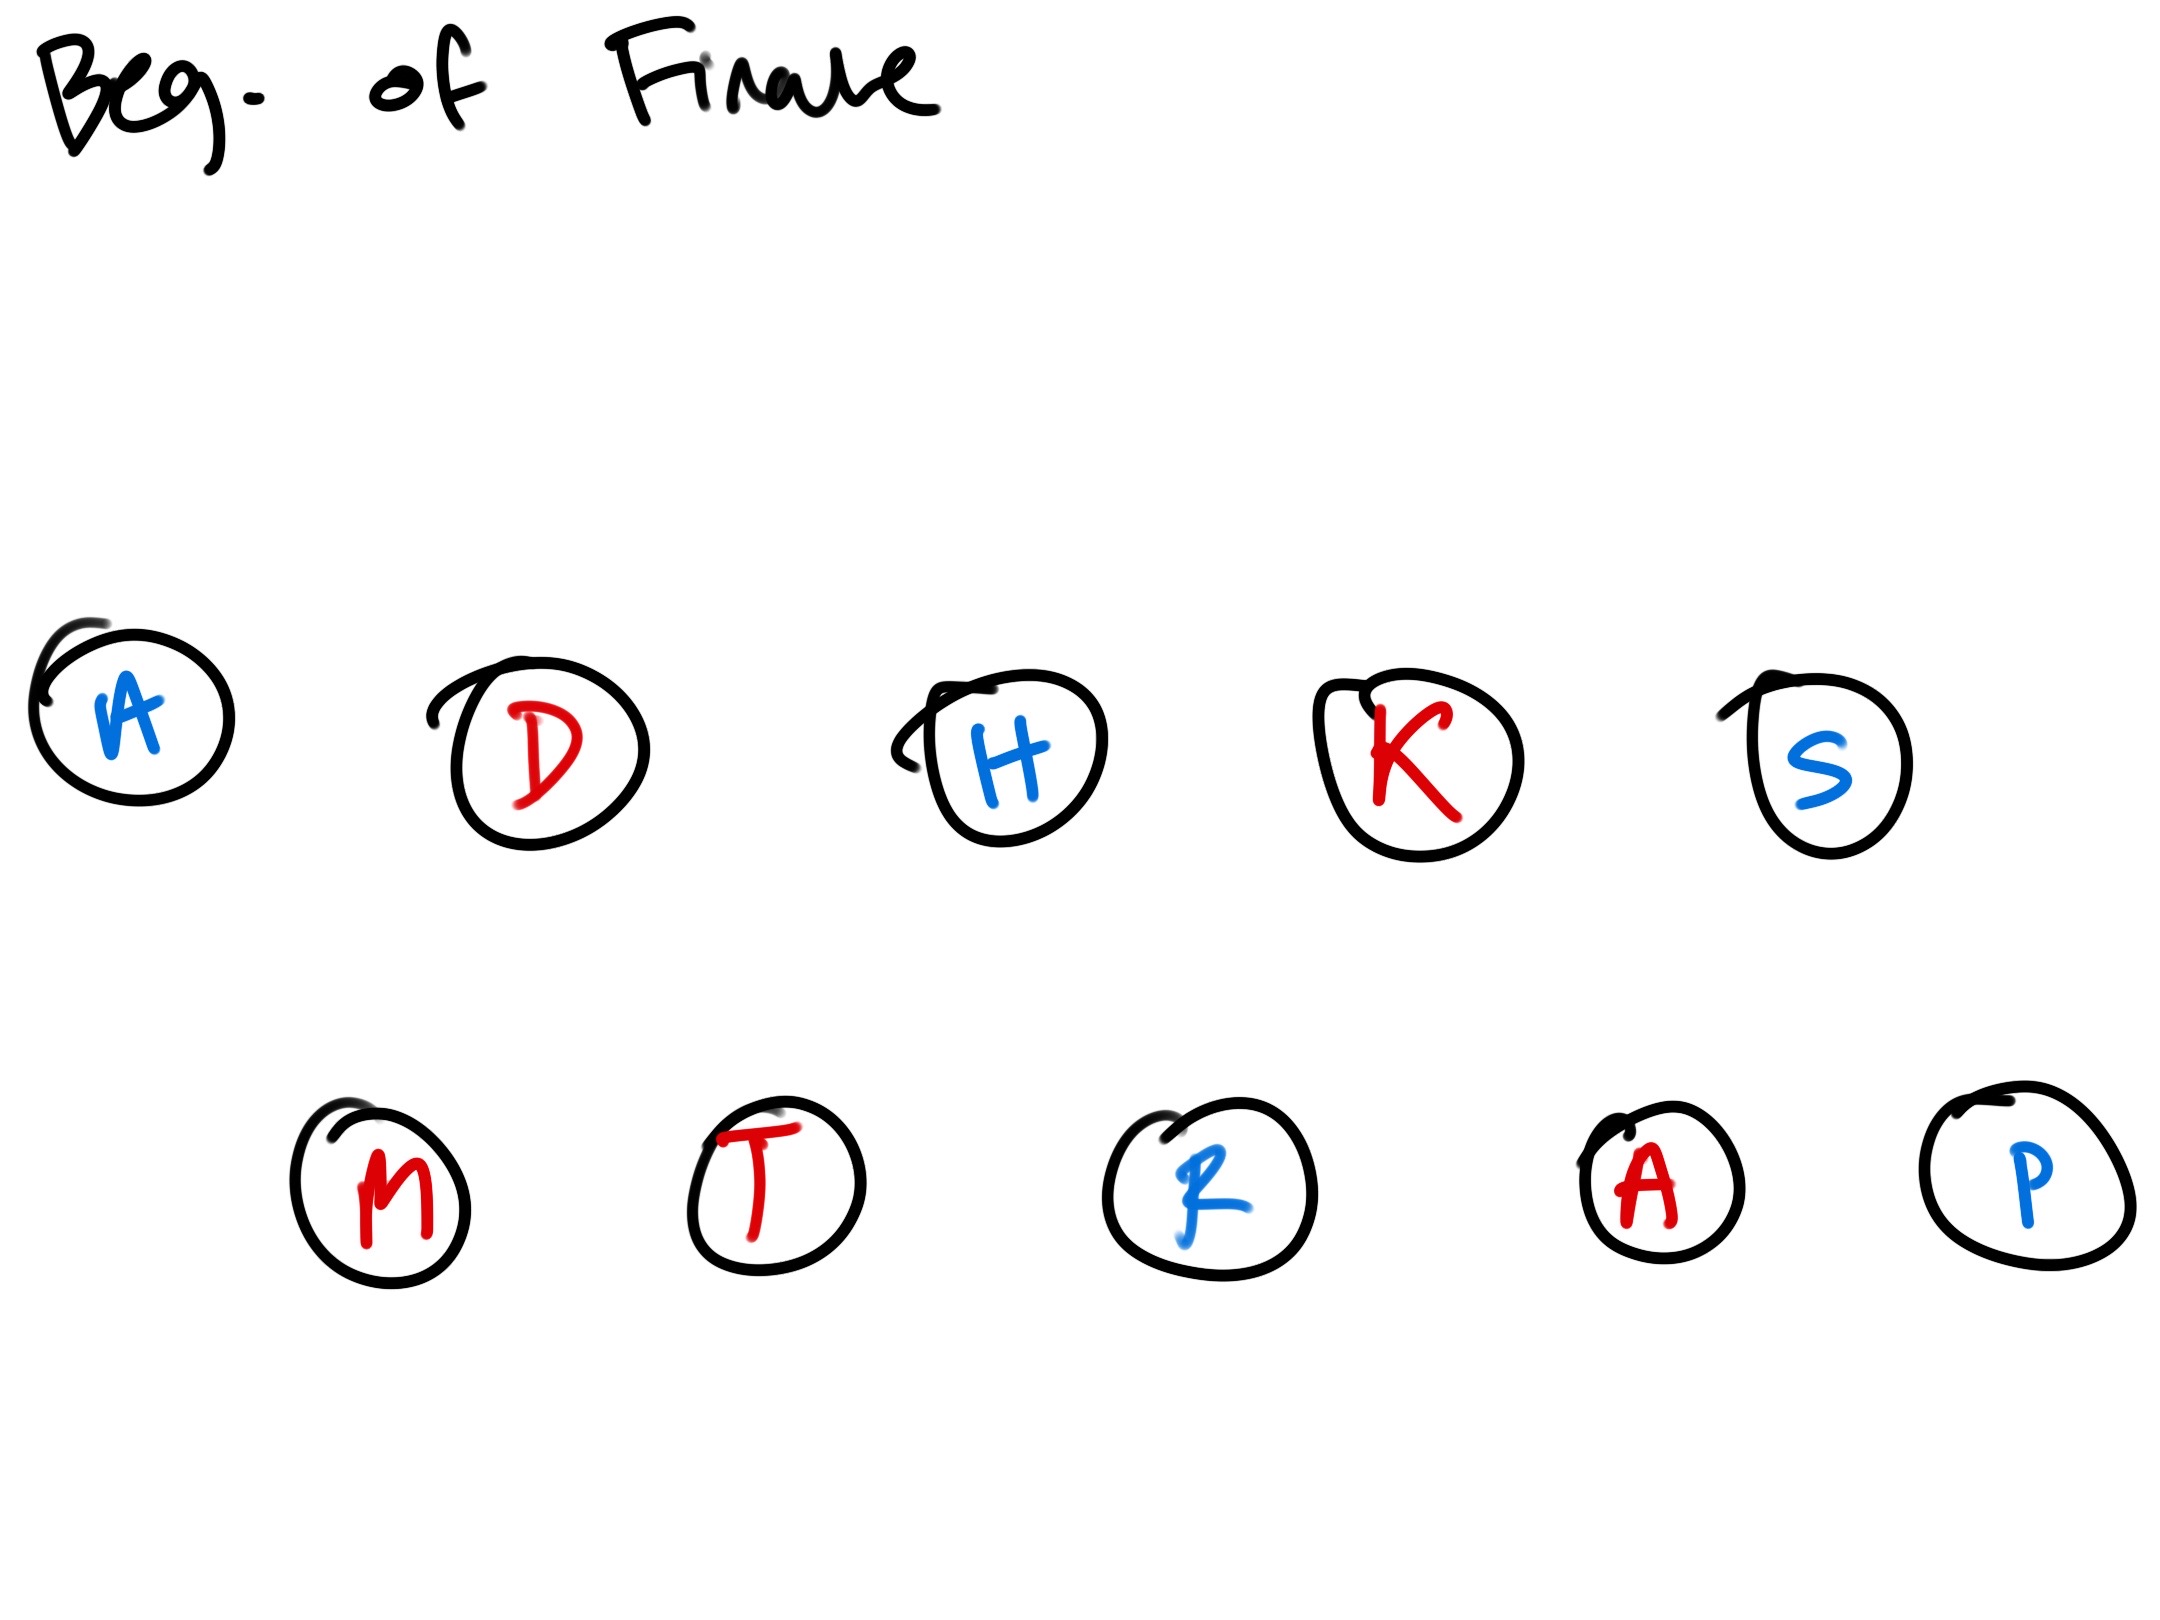 Beg. of Finale
A D H K S
M T R A P